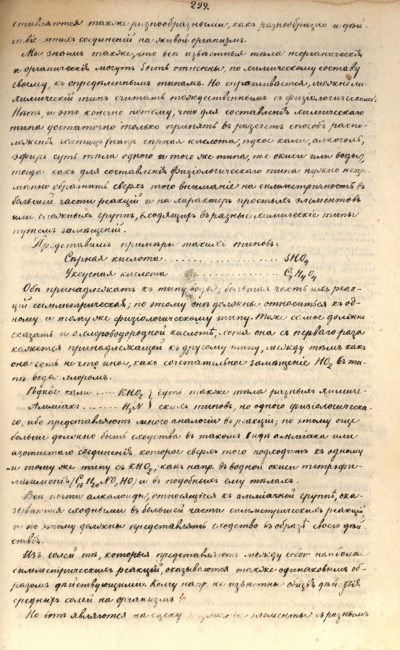 299.
ставляются также разнообразными, какъ разнообразно и дѣй
ствіе этихъ соединеній на живой организмъ.
Мы знаемъ также, что всѣ извѣстныя тѣла неорганическія
и органическія могутъ быть отнесены, по химическому составу
своему, къ опредѣленнымъ типамъ. Но спрашивается, можно ли
химическій типъ считать тождественнымъ съ физіологическимъ?
Нѣтъ, и это конечно потому, что для составленія химическаго
типа достаточно только принять въ разсчетъ способъ распо-
ложенія частицъ (напр. сѣрная кислота, ѣдкое кали, алкоголь,
эфиръ суть тѣла одного и того же типа, т.е. окиси или воды),
тогда какъ для составленія физіологическаго типа нужно непре-
мѣнно обратить сверхъ того вниманіе на симметричность въ
большей части реакцій и на характеръ простыхъ элементовъ
или сложныхъ группъ, входящихъ въ разные химическіе типы
путемъ замѣщенія.
Представимъ примѣры такихъ типовъ.
Сѣрная кислота ........ SHO4
Уксусная кислота ........ C4H4O4
Обѣ принадлежатъ къ типу воды; большая часть ихъ реак-
цій симметрическая; по этому онѣ должны относиться къ од-
ному и тому же физіологическому типу. Тоже самое должно
сказать и о хлороводородной кислотѣ, хотя она съ перваго раза
кажется принадлежащей къ другому типу, между тѣмъ какъ
она есть ни что иное, какъ сочетательное замѣщеніе HO2 въ ти-
пѣ воды хлоромъ.
Ѣдкое кали ..... KHO2 } суть также тѣла разныхъ химиче-
Амміакъ ....... H3N } скихъ типовъ, но одного физіологическа-
го, ибо представляютъ много аналогіи въ реакціи; по этому еще
больше должно быть сходства въ такомъ видѣ амміака или
азотистаго соединенія, которое сверхъ того подходитъ къ одному
и тому же типу съ KHO2, какъ напр. въ водной окиси тетраэти-
ламмонія и въ подобныхъ ему тѣлахъ.
Всѣ почти алкалоиды, относящіеся къ амміачной группѣ, ока-
зываются сходными въ большей части симметрическихъ реакцій
и по этому должны представлять сходство въ образѣ своего дѣй-
ствія.
Изъ солей тѣ, которыя представляютъ между собою наиболѣе
симметрическихъ реакцій, оказываются также одинаковымъ об-
разомъ дѣйствующими. Кому напр. не извѣстны общія дѣйствія
среднихъ солей на организмъ?
Но вотъ являются на сцену элементы съ разнымъ